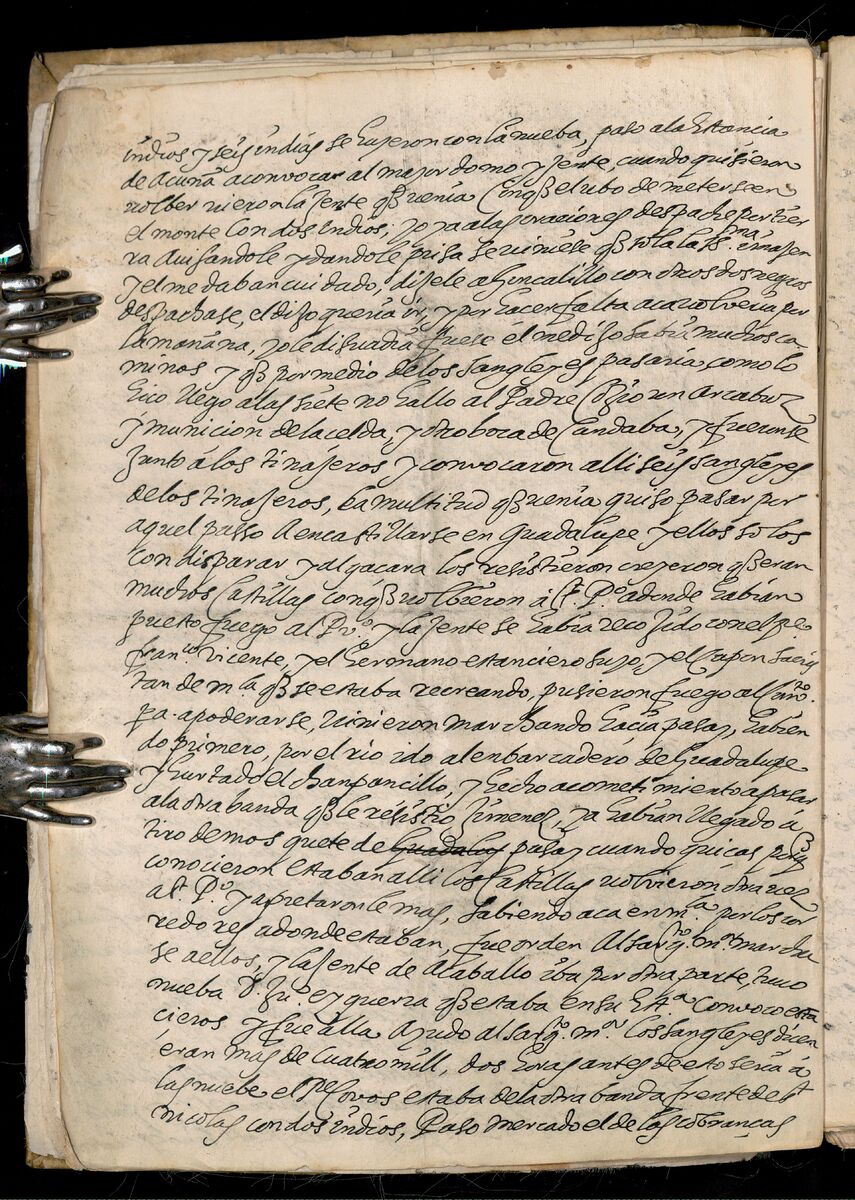 indios y seis indias se huyeron con la nueba, paso a la Estancia
de Acuña a convocar al mayor domo y jente, cuando quisieron
volber vieron la jente q̃ venia Conq̃ el ubo de meterse en
el monte con dos indios; yo ya a las oraciones despache por tier
ra auisandole y dandole prisa se viniese q̃ sola la ymajen
y el me daban cuidado, dijele a Goncalillo con otros dos negros
despachase, el dijo queria ir, y por hacer falta aca volveria por
la mañana, yo le disuadia fuese el me dijo sabia muchos ca-
minos y q̃ por medio de los sangleyes pasaria como lo
hico llego a las siete no hallo al Padre Cojio un Arcabuz
y municion de la celda, y otro boca de Candaba, y fueronse
junto a los tinajeros y convocaron alli seis sangleyes
de los tinajeros, la multitud q̃ venia quiso pasar por
aquel passo A encastillarse en Guadalupe y ellos solos
con disparar y algaçara los resistieron creyeron q̃ eran
muchos Castillas conq̃ volbieron á S. P.º adonde habian
puesto fuego al y la jente se habia recojido con el
fran.co Vicente, y el Hermano estanciero suyo, y el
tan de m.la q̃ se estaba recreando, pusieron fuego al
pa. apoderarse, Vinieron marchando hacia pasay, habien
do primero, por el rio ido al enbarcadero de Guadalupe
y hurtado el chanpancillo, y hecho acometimiento a pasar
a la otra banda q̃ le resistio Jimenez, ya habian llegado á
tiro de mosquete de Guadalup pasay cuando quicas porq̃
conocieron estaban alli los Castillas volvieron otra vez
a S. P.º y apretaronle mas, sabiendo aca en m.la por los cor
redores adonde estaban, fue orden Al sarg.to m.r marcha
se a ellos, y la jente de A caballo iba por otra parte, tuvo
nueba D. Ju.º eyguerra q̃ estaba en su Est.a Convoco esta
cieros y fue alla Ayudo al sarg.to m.r los sangleyes dicen
eran mas de cuatro mill, dos horas antes de esto seria á
las nuebe el P.e Cobos estaba de la otra banda frente de S.t
nicolas con dos indios, Paso mercado el de las cobranças